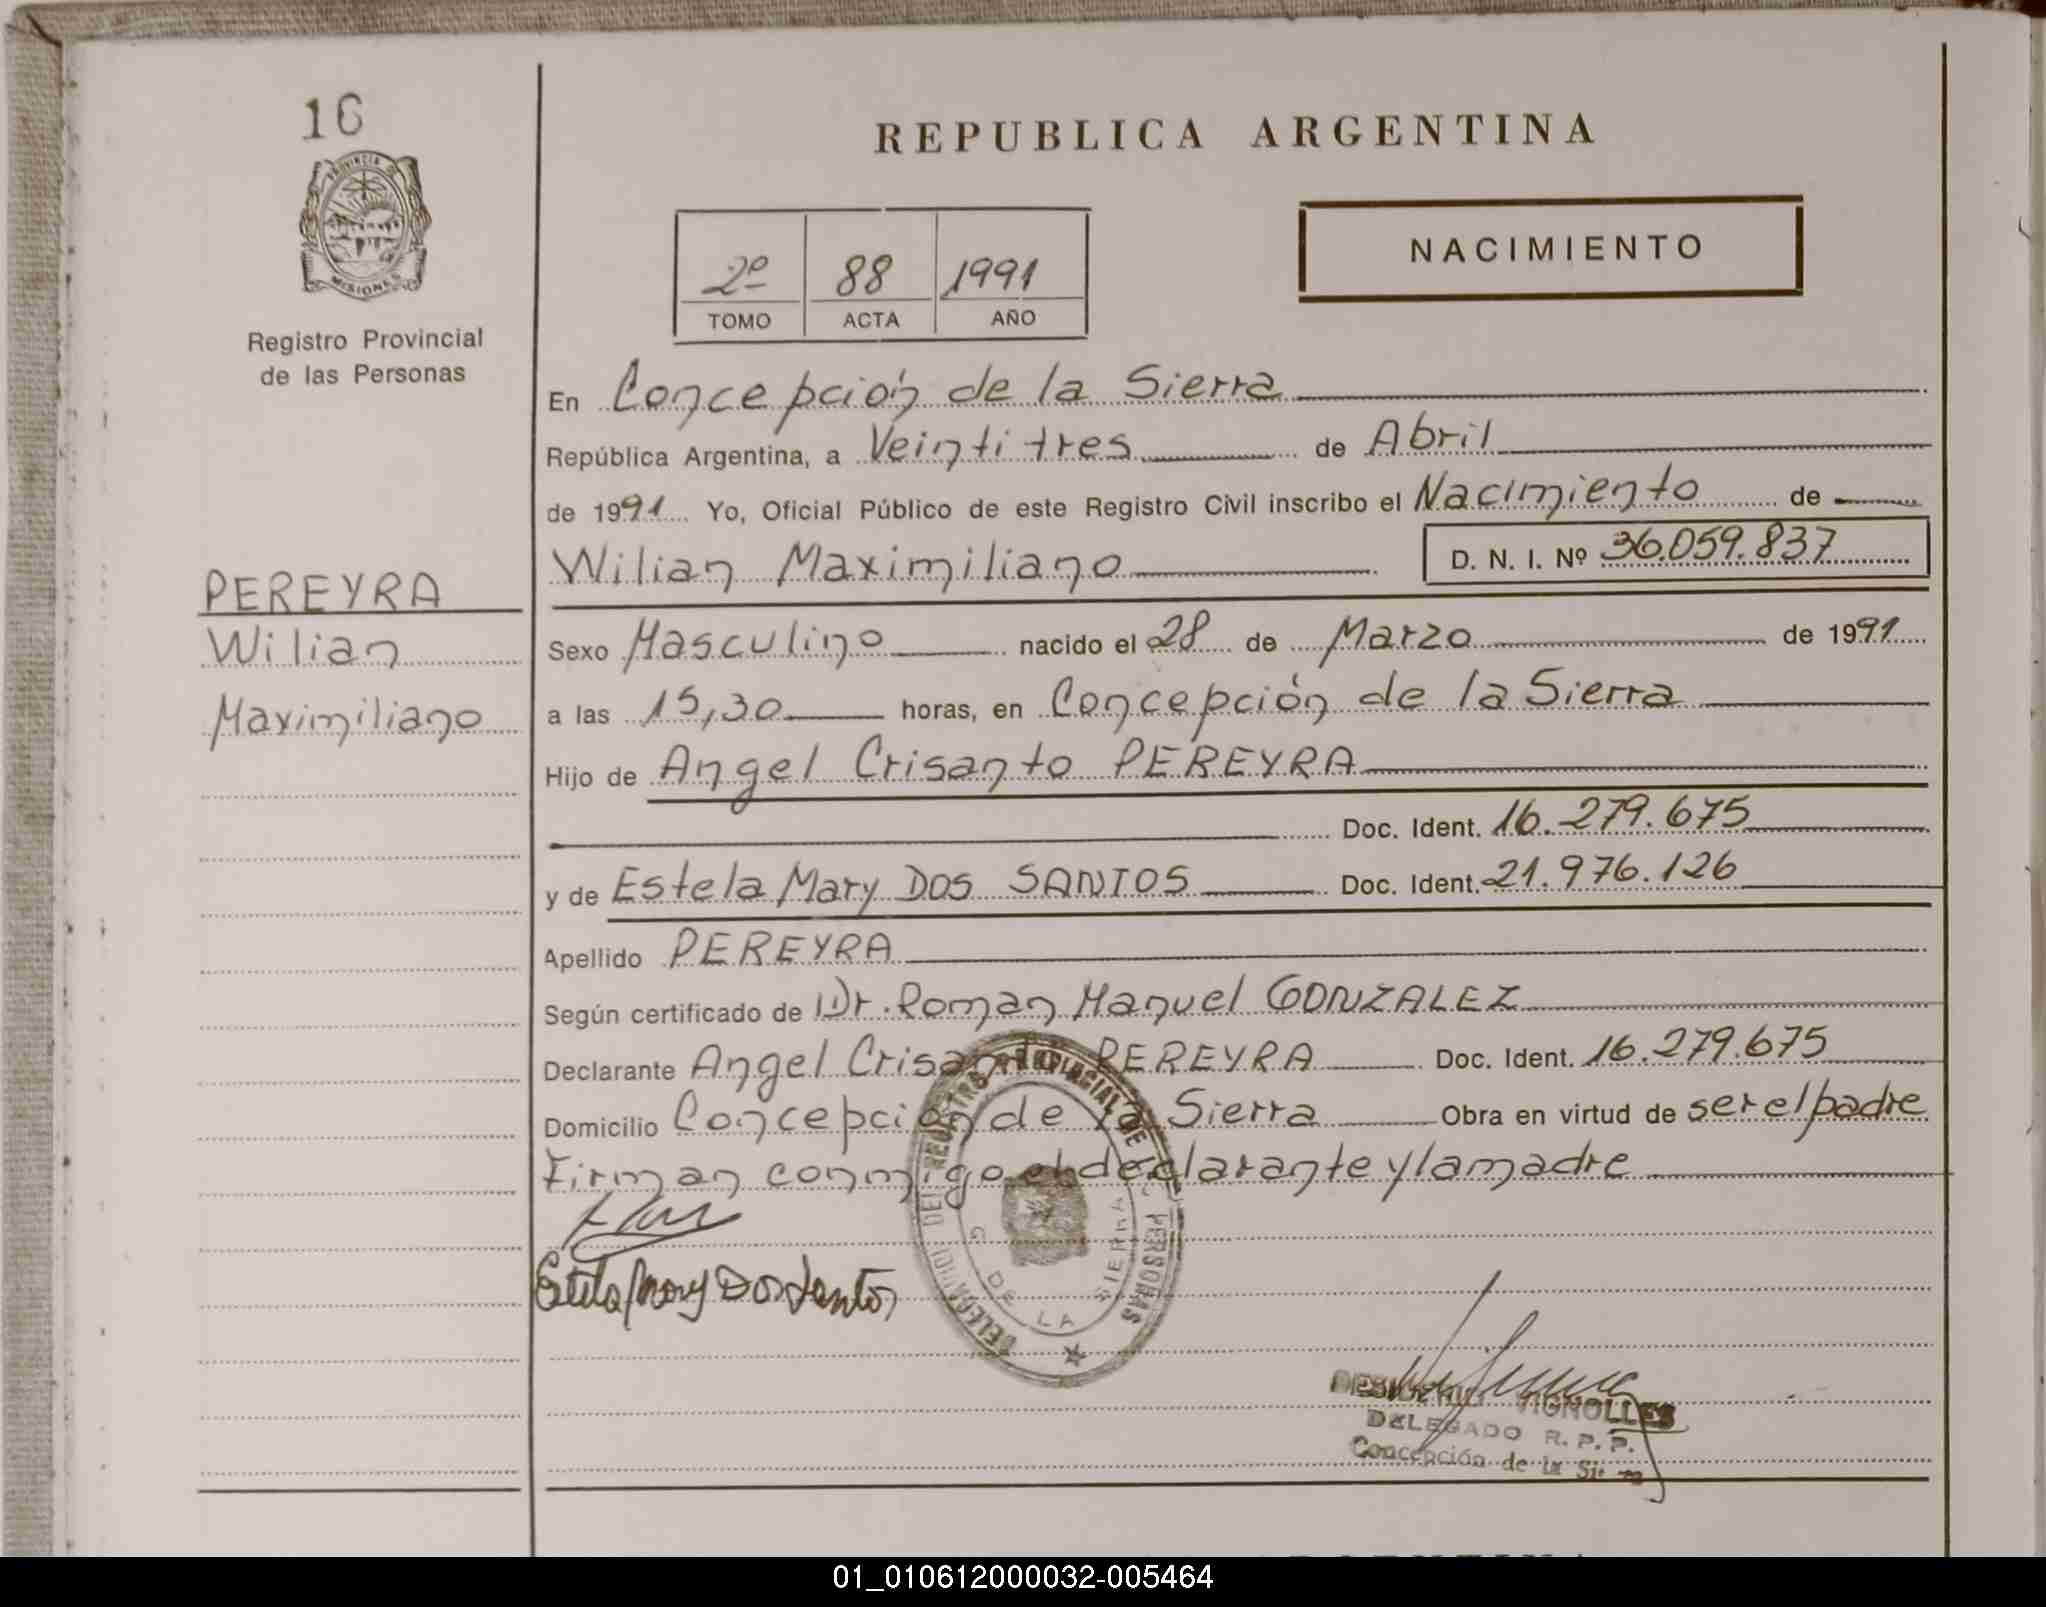 16
PROVINCIA DE
MISIONES
Registro Provincial
de las Personas
PEREYRA
Wilian
Maximiliano
REPUBLICA ARGENTINA
2º 88 1991
TOMO ACTA AÑO
NACIMIENTO
En Concepción de la Sierra
República Argentina, a Veintitres de Abril
de 1991 Yo, Oficial Público de este Registro Civil inscribo el Nacimiento de
Wilian Maximiliano D. N. I. Nº 36.059.837
Sexo Masculino nacido el 28 de Marzo de 1991
a las 15,30 horas, en Concepción de la Sierra
Hijo de Angel Crisanto PEREYRA
Doc. Ident. 16.279.675
y de Estela Mary DOS SANTOS Doc. Ident. 21.976.126
Apellido PEREYRA
Según certificado de Dr. Roman Manuel GONZALEZ
Declarante Angel Crisanto PEREYRA Doc. Ident. 16.279.675
Domicilio Concepción de la Sierra Obra en virtud de ser el padre
Firman conmigo el declarante y la madre
Estela Mary Dos Santos
REGISTRO PROVINCIAL DE PERSONAS
DE LA SIERRA
VIGNOLLES
DELEGADO R. P. P.
Concepción de la
01_010612000032-005464